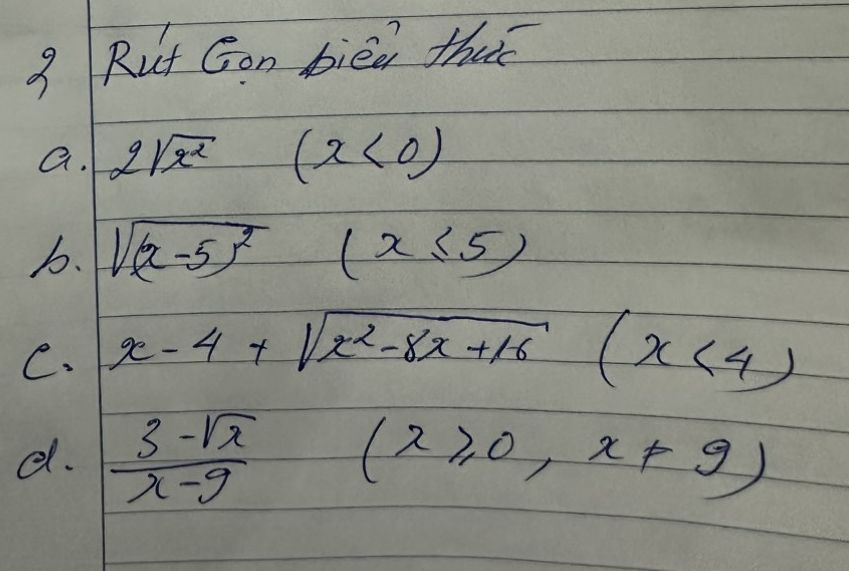 2 Rút Gọn biểu thức
a. 2√x² (x < 0)
b. √(x-5)² (x ≤ 5)
c. x - 4 + √x² - 8x + 16 (x < 4)
d. 3 - √x / x - 9 (x ≥ 0, x ≠ 9)